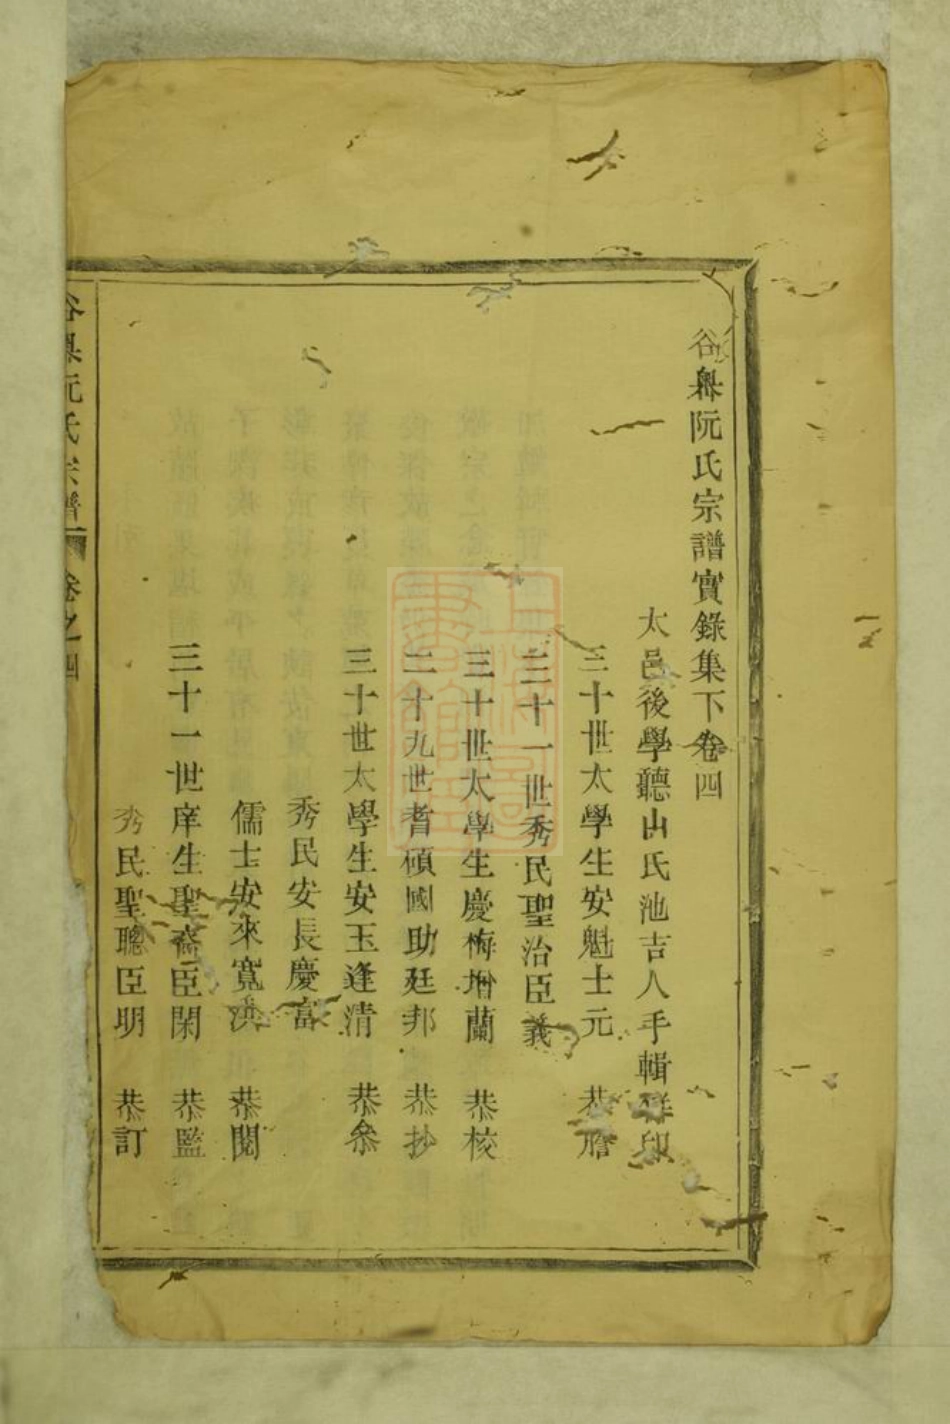 谷學阮氏宗譜實錄集下卷四
太邑後學聽山氏池吉人手輯
三十世太學生安魁士元 恭謄
三十一世秀民聖治臣義
三十世太學生慶梅增蘭 恭校
二十九世耆碩國助廷邦 恭抄
三十世太學生安玉逢清 恭叅
秀民安長慶富
儒士安來寬洪 恭閱
三十一世庠生聖裔臣閑 恭監
秀民聖聰臣明 恭訂
阮氏宗譜 卷之四